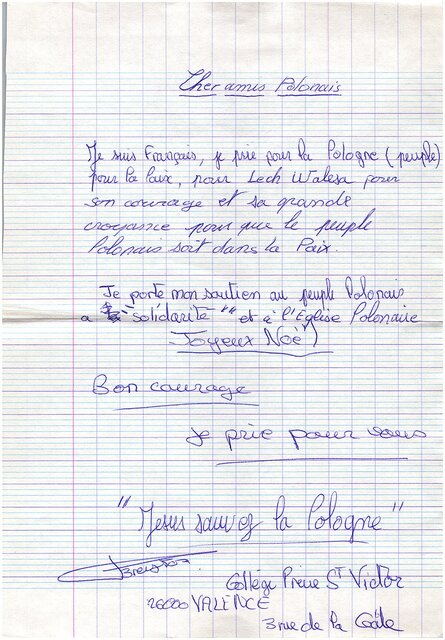 Cher amis Polonais
Je suis Français, je prie pour la Pologne (peuple)
pour la Paix, pour Lech Walesa pour
son courage et sa grande
croyance pour que le peuple
Polonais soit dans la Paix.
Je porte mon soutien au peuple Polonais
a "solidarité" et à l'Eglise Polonaise
Joyeux Noël
Bon courage
je prie pour vous
"Jesus sauvez la Pologne"
Collège St Victor
26000 VALENCE
3 rue de la